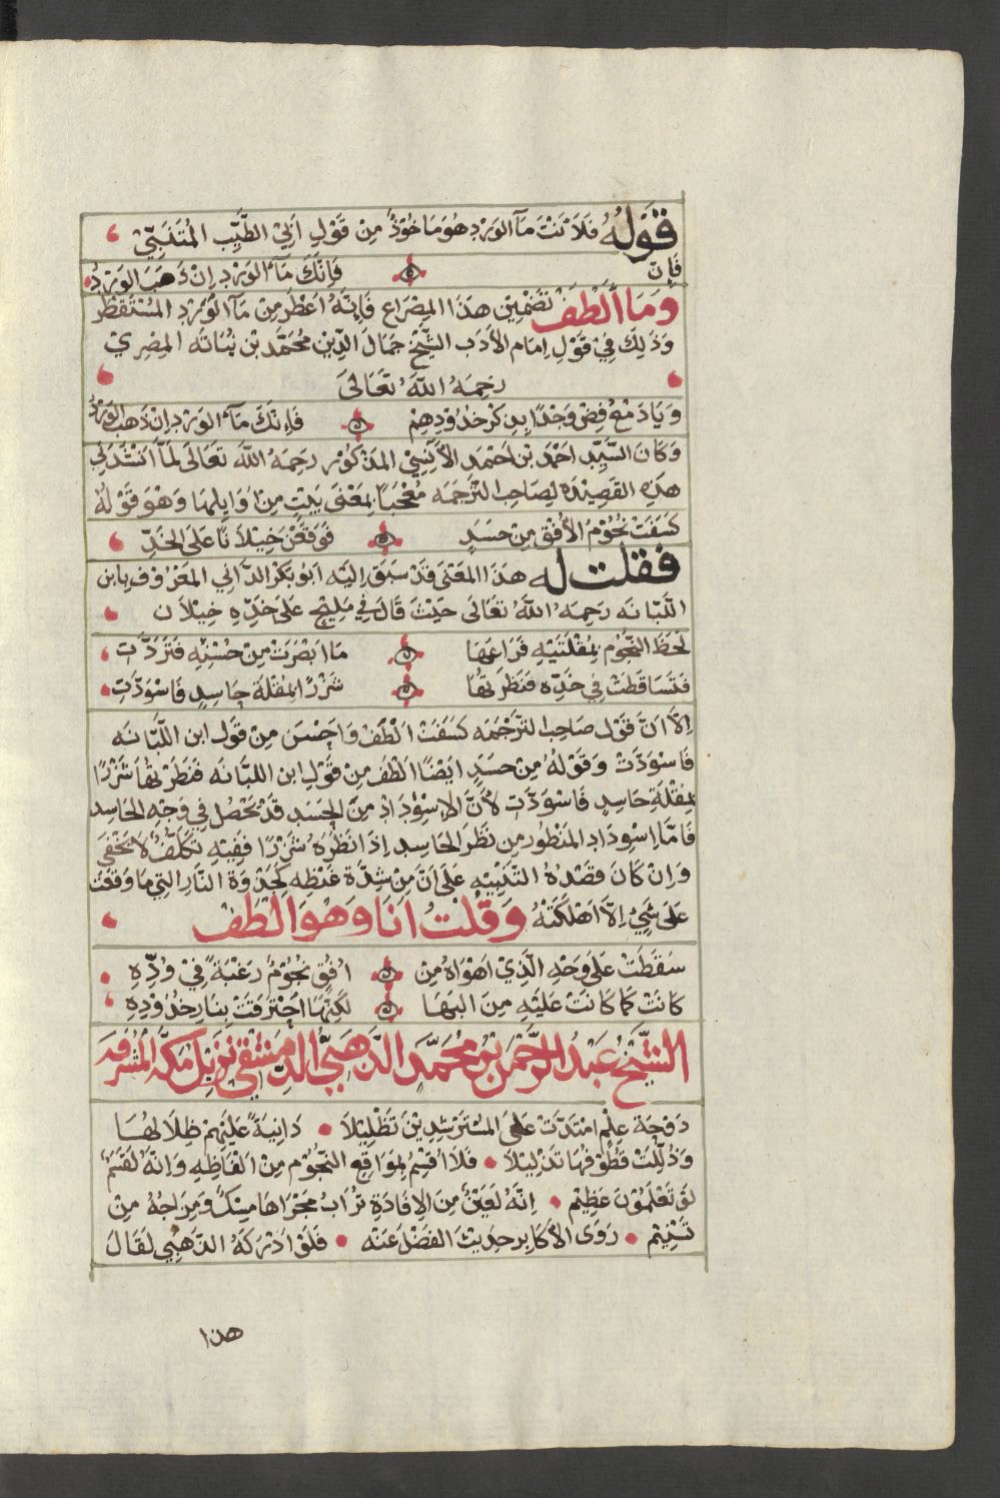 قَوْلُهُ فَلَاَنْتَ مَآ الوَرْدِ هُوَ مَاخُوْذٌ مِنْ قَوْلِ اَبِيْ الطَّيِّبِ المُتَنَبِّيْ
فَاِنّ فَاِنَّكَ مَآءُ الوَرْدِ اِنْ ذَهَبَ الوَرْدُ
وَمَا اَلْطَفَ تَضْمِيْنَ هَذَا المِصْرَاعِ فَاِنَّهُ اَعْطَرُ مِنْ مَآ الوَرْدِ المُسْتَقْطَرْ
وَذَلِكَ فِيْ قَوْلِ اِمَامِ الأَدَبِ الشَّيْخِ جَمَالَ الدِّيْنِ مُحَمَّدِ بْنِ نُبَاتَه المِصْرِيْ
رَحِمَهُ اللَّهُ تَعَالَىَ
وَيَا دَمْعُ فِضْ وَجْدًا بِذِكْرِ خُدُوْدِهِمْ فَاِنَّكَ مَآءُ الوَرْدِ اِنْ ذَهَبَ الوَرْدُ
وَكَانَ السَّيِّدْ اَحْمَدْ بْنِ اَحْمَدِ الأَنَسِيْ المَذْكُوْرِ رَحِمَهُ اللَّهُ تَعَالَى لَمَّا اَنْشَدَنِيْ
هَذِهِ القَصِيْدَه لِصَاحِبِ التَّرْجَمَه مُعْجَبًا بِمَعْنَى بَيْتٍ مِنْ اَوَايِلِهَا وَهُوَ قَوْلُهُ
كَسَفَتْ نُجُوْمَ الأُفْقِ مِنْ حَسَدٍ فَوَقَعْنَ خِيْلَانًا عَلَى الخَدِّ
فقلت له هَذَا المَعْنَى قَدْ سَبَقَ اِلَيْه اَبُو بَكْرْ الدَّانِي المَعْرُوْفْ بِابْن
اللَّبَّانَه رَحِمَهُ اللَّهُ تَعَالَى حَيْثَ قَالَ فِي مَلِيْحٍ عَلَى خَدِّهِ خِيْلَان
لَحَظَ النُّجُوْمَ بِمُقْلَتَيْهِ فَرَاعَهَا مَا اَبْصَرَتْ مِنْ حُسْنِهِ فَتَرَدَّتِ
فَتَسَاقَطَتْ فِي خَدِّه فَنَظَرْتُهَا شَزْرًا بِمُقْلَةِ حَاسِدٍ فَاسْوَدَّتِ
اِلَّا اَنَّ قَوْلَ صَاحِبِ التَّرْجَمَه كَسَفَتْ اَلْطَفْ وَاَحْسَنَ مِنْ قَوْلِ ابن اللَّبَّانَه
فَاسْوَدَّتْ وَقَوْلُهُ مِنْ حَسَدٍ اَيْضًا اَلْطَفُ مِنْ قَوْلِ ابن اللبَّانَه فَنَظَرْتُهَا شَزْرًا
بِمُقْلَةِ حَاسِدٍ فَاسْوَدَّتِ لأَنَّ الاِسْوِدَادِ مِنَ الحَسَدِ قَدْ يَحْصُلُ فِي وَجْهِ الحَاسِدِ
فَامَّا اِسْوِدَادِ المَنْظُوْرِ مِنْ نَظَرِ الحَاسِدِ اِذَا نَظَرَهُ شَزْرًا فَفِيْهِ تَكَلُّفٌ لَا يَخْفَى
وَاِنْ كَانَ قَصْدُهُ التَّنْبِيْهِ عَلَى اَنَّ مِنْ شِدَّةِ غَيْظِهِ كَجَذْوَة النَّارِ التِي مَا وَقَعَتْ
عَلَى شَيْءٍ اِلَّا اَهْلَكَتْهُ وَقُلْتُ اَنَا وَهْوَ اَلْطَفْ
سَقَطَتْ عَلَى وَجْهِ الَّذِيْ اَهْوَاهُ مِنْ اُفُقٍ نُجُوْمٌ رَغْبَةً فِيْ وُدِّهِ
كَانَتْ كَمَا كَانَتْ عَلَيْهِ مِنَ البَهَا لَكِنَّهَا اَحْتَرَقَتْ بِنَارِ خُدُوْدِهِ
الشَّيْخُ عَبْدُ الرَّحْمٰنِ بْنُ مُحَمَّدْ الذَّهَبِيُّ الدِّمَشْقِيْ نَزِيْلُ مَكَّةَ المُشَرَّفَه
دَوْحَةُ عِلْمٍ اِمْتَدَّتْ عَلَىَ المُسْتَرْشِدِيْنَ تَظْلِيْلًا • دَانِيَةً عَلَيْهِمْ ظِلَالُهُا
وَذُلِّلَتْ قُطُوْفُهَا تَذْلِيْلًا • فَلَا اُقْسِمُ بِمَوَاقِعِ النُّجُوْمِ مِنْ اَلْفَاظِهِ وَاِنَّهُ لَقَسَمٌ
لَوْ تَعْلَمُوْنَ عَظِيْمٌ • اِنَّهُ لَعَيْنٌ مِنَ الاِفَادَةِ تُرَابُ مَجْرَاهَا مِسْكٌ وَمِزَاجُهُ مِنْ
تَسْنِيْمٍ • رَوَى الأَكَابِرُ حَدِيْثَ الفَضْلِ عَنْهُ • فَلَوْ اَدْرَكَهُ الذَّهَبِيْ لَقَالَ
هذا